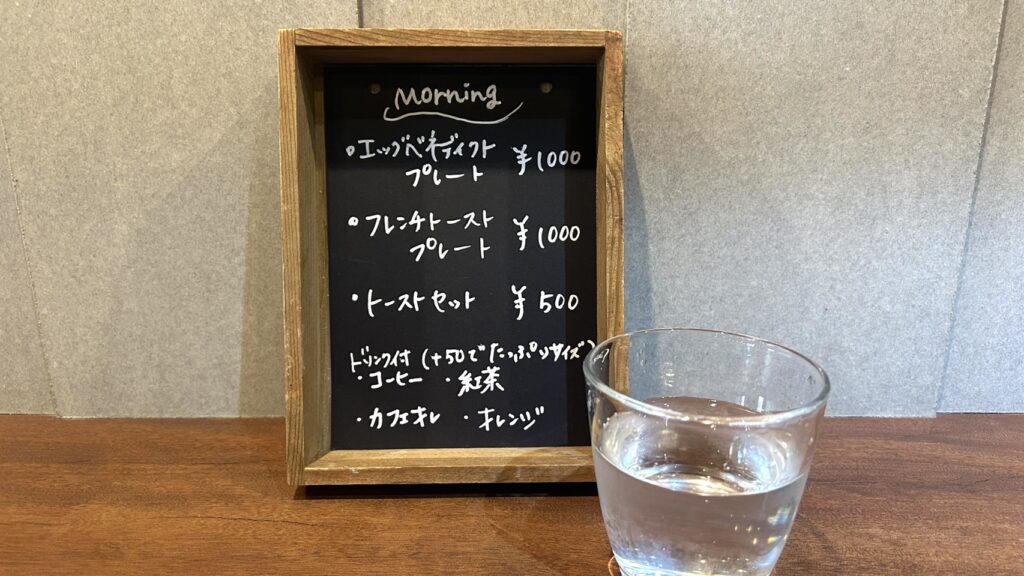 Morning
・エッグベネディクト
プレート ¥1000
・フレンチトースト
プレート ¥1000
・トーストセット ¥500
ドリンク付 (+50でたっぷりサイズ)
・コーヒー ・紅茶
・カフェオレ ・オレンジ